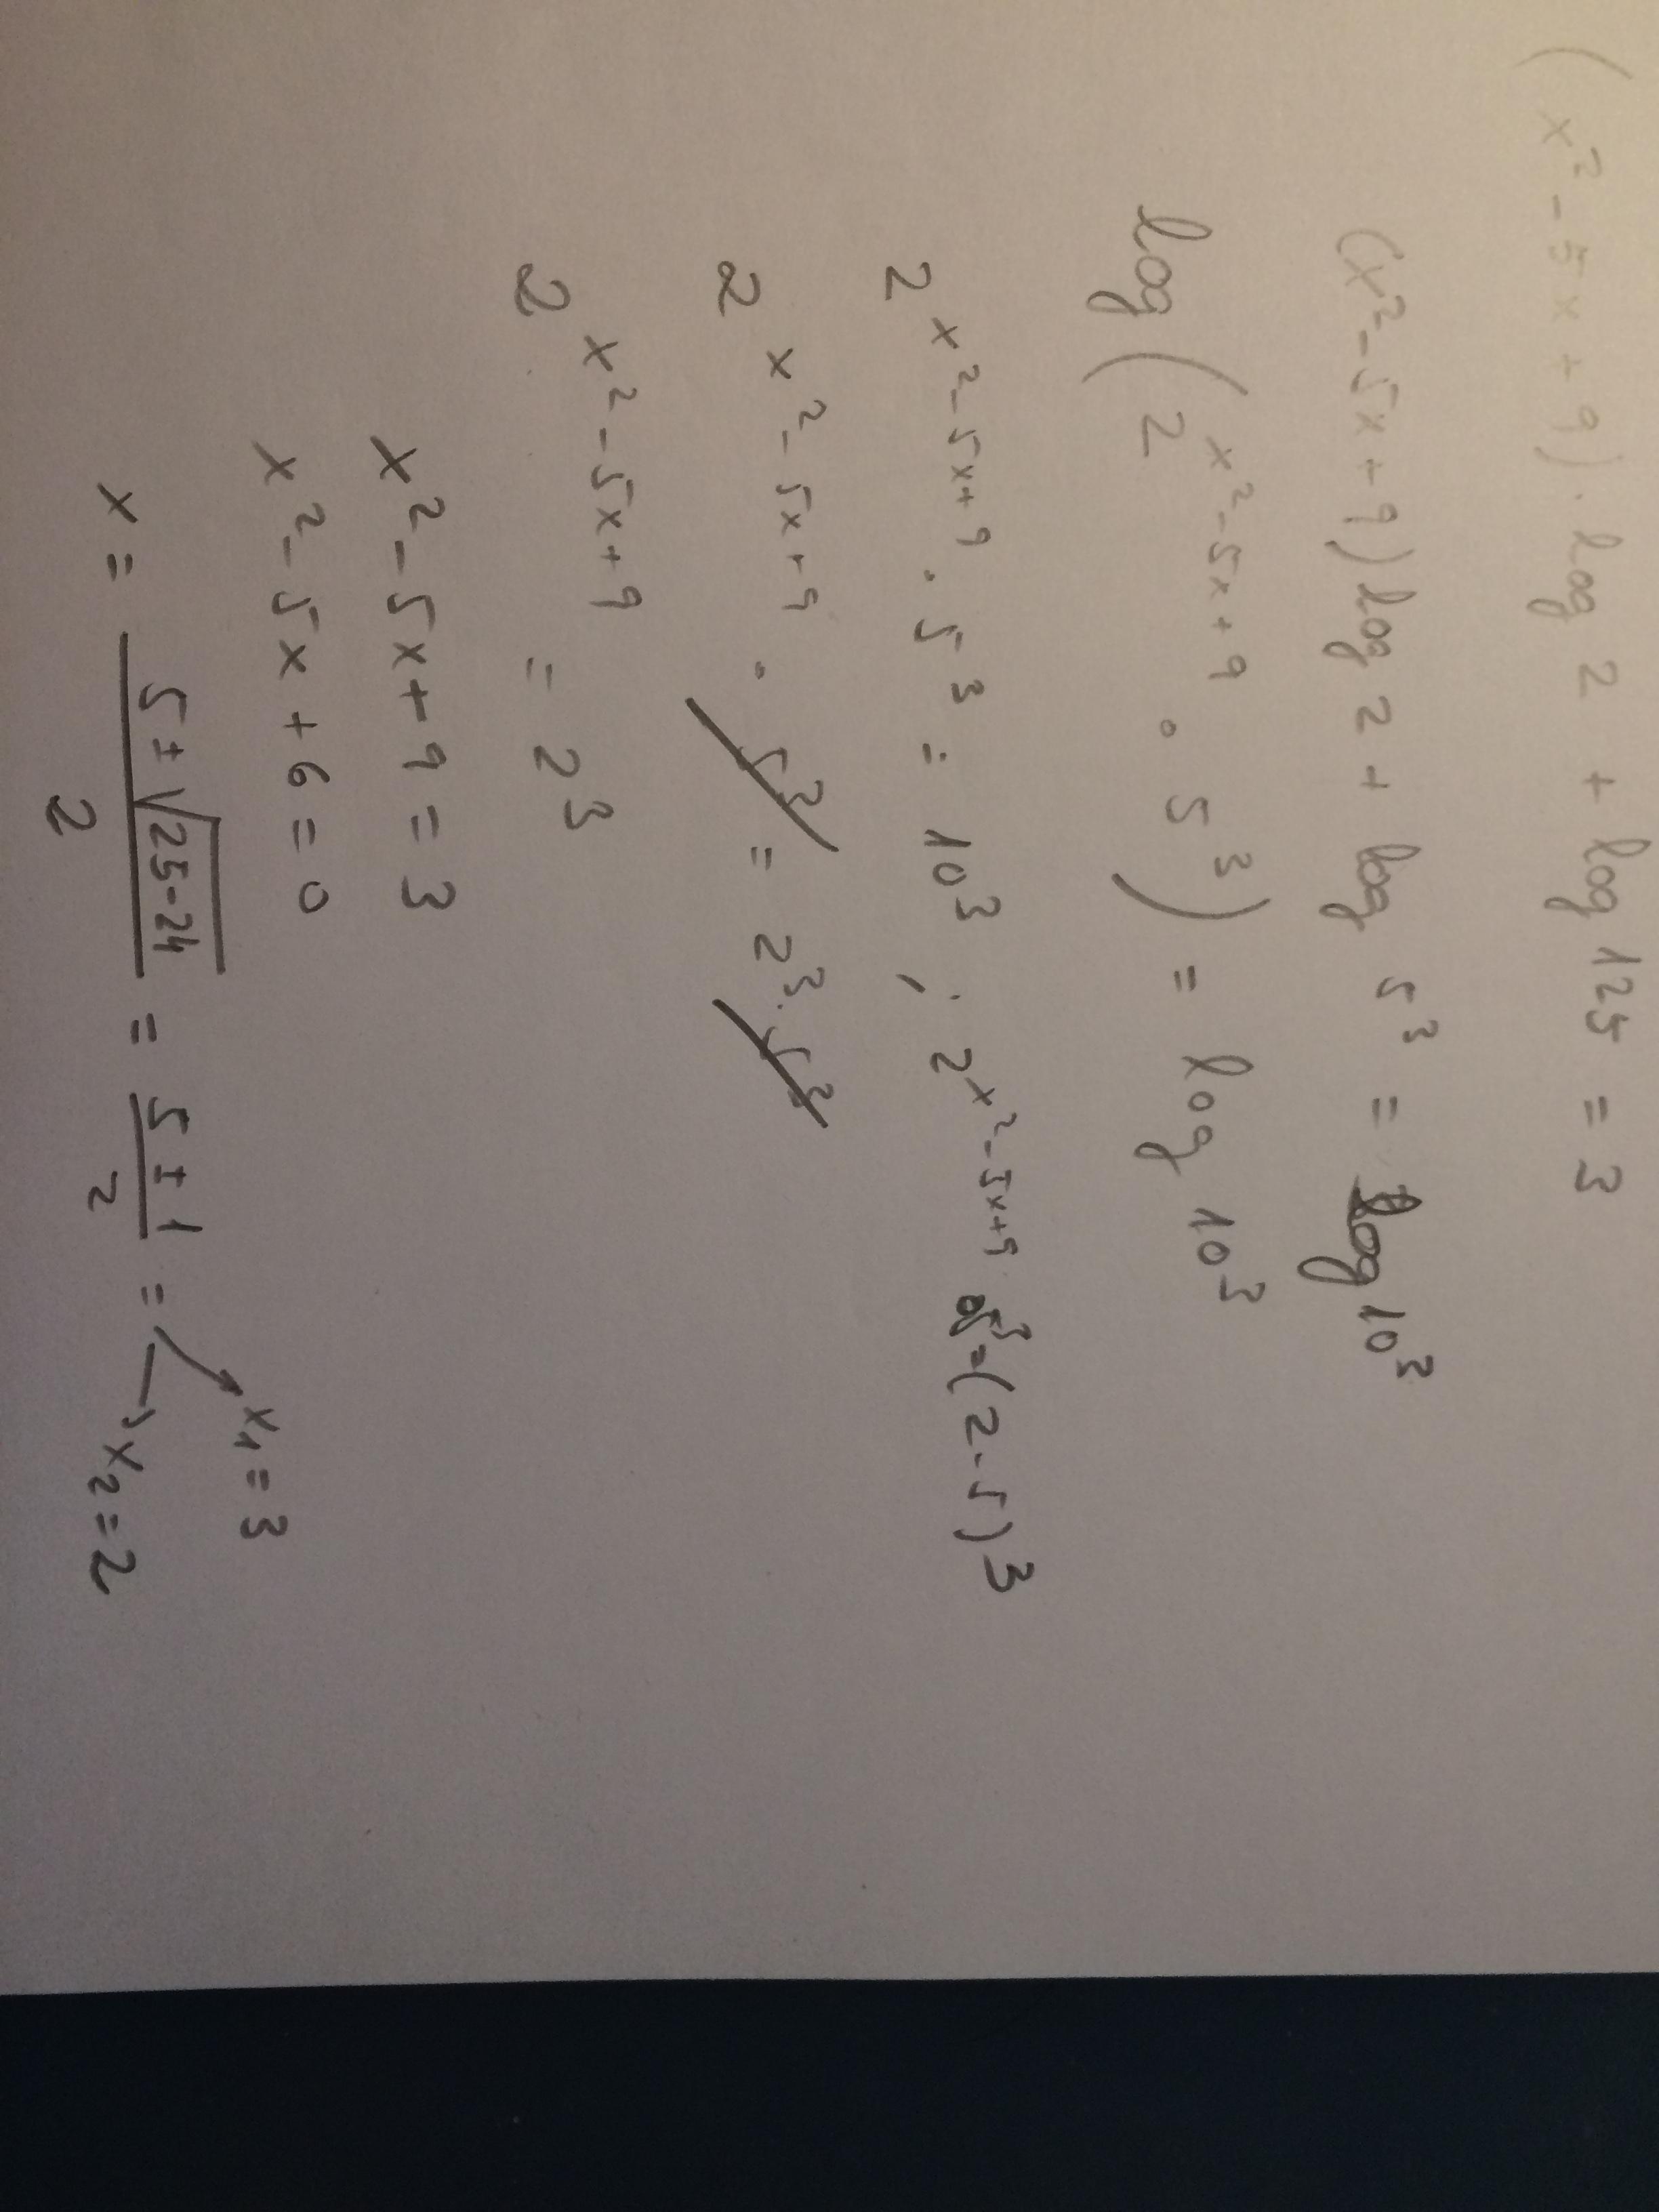 (x² - 5x + 9) · log 2 + log 125 = 3
(x² - 5x + 9) log 2 + log 5³ = log 10³
log (2^(x² - 5x + 9) · 5³) = log 10³
2^(x² - 5x + 9) · 5³ = 10³ ; 2^(x² - 5x + 9) · 5³ = (2·5)³
2^(x² - 5x + 9) · 5³ = 2³ · 5³
2^(x² - 5x + 9) = 2³
x² - 5x + 9 = 3
x² - 5x + 6 = 0
x = (5 ± √(25-24))/2 = (5 ± 1)/2 = → x₁ = 3
→ x₂ = 2